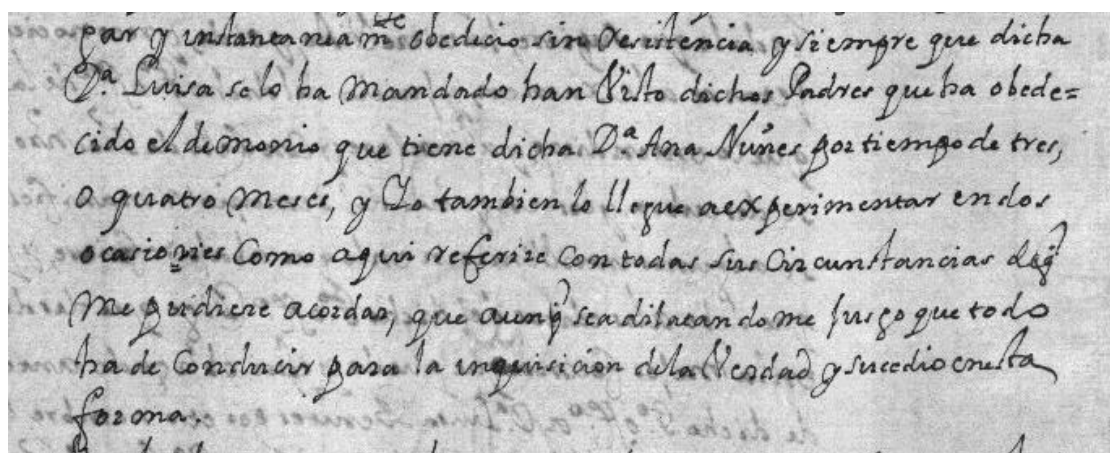 par y instantaneamte obedecio sin resistencia y siempre que dicha
Da. Luisa se lo ha mandado han Visto dichos Padres que ha obede=
cido el demonio que tiene dicha Da. Ana Nuñes por tiempo de tres,
o quatro meses, y Yo tambien lo llegue a experimentar en dos
ocasiones Como aqui referire Con todas sus Circunstancias de q̃
me pudiere acordar, que aunq̃ sea dilatandome jusgo que todo
ha de Conducir para la inquisicion de la Verdad y sucedio en esta
forma.